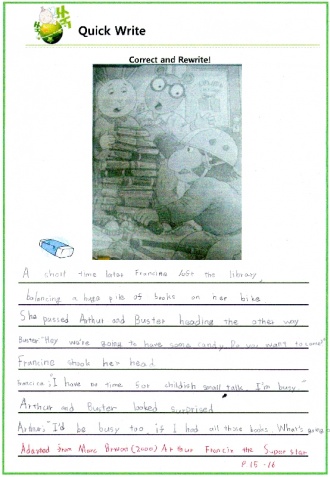 Quick Write
Correct and Rewrite!
A short time later Francine left the library,
balancing a huge pile of books on her bike
She passed Arthur and Buster heading the other way
Buster "Hey we're going to have some candy. Do you want to come?"
Francine shook her head.
Francine: "I have no time for childish small talk. I'm busy."
Arthur and Buster looked surprised.
Arthur, "I'd be busy too, if I had all those books. What's going
Adapted from Marc Brown (2000) Arthur Francine the Superstar
P. 15 - 16